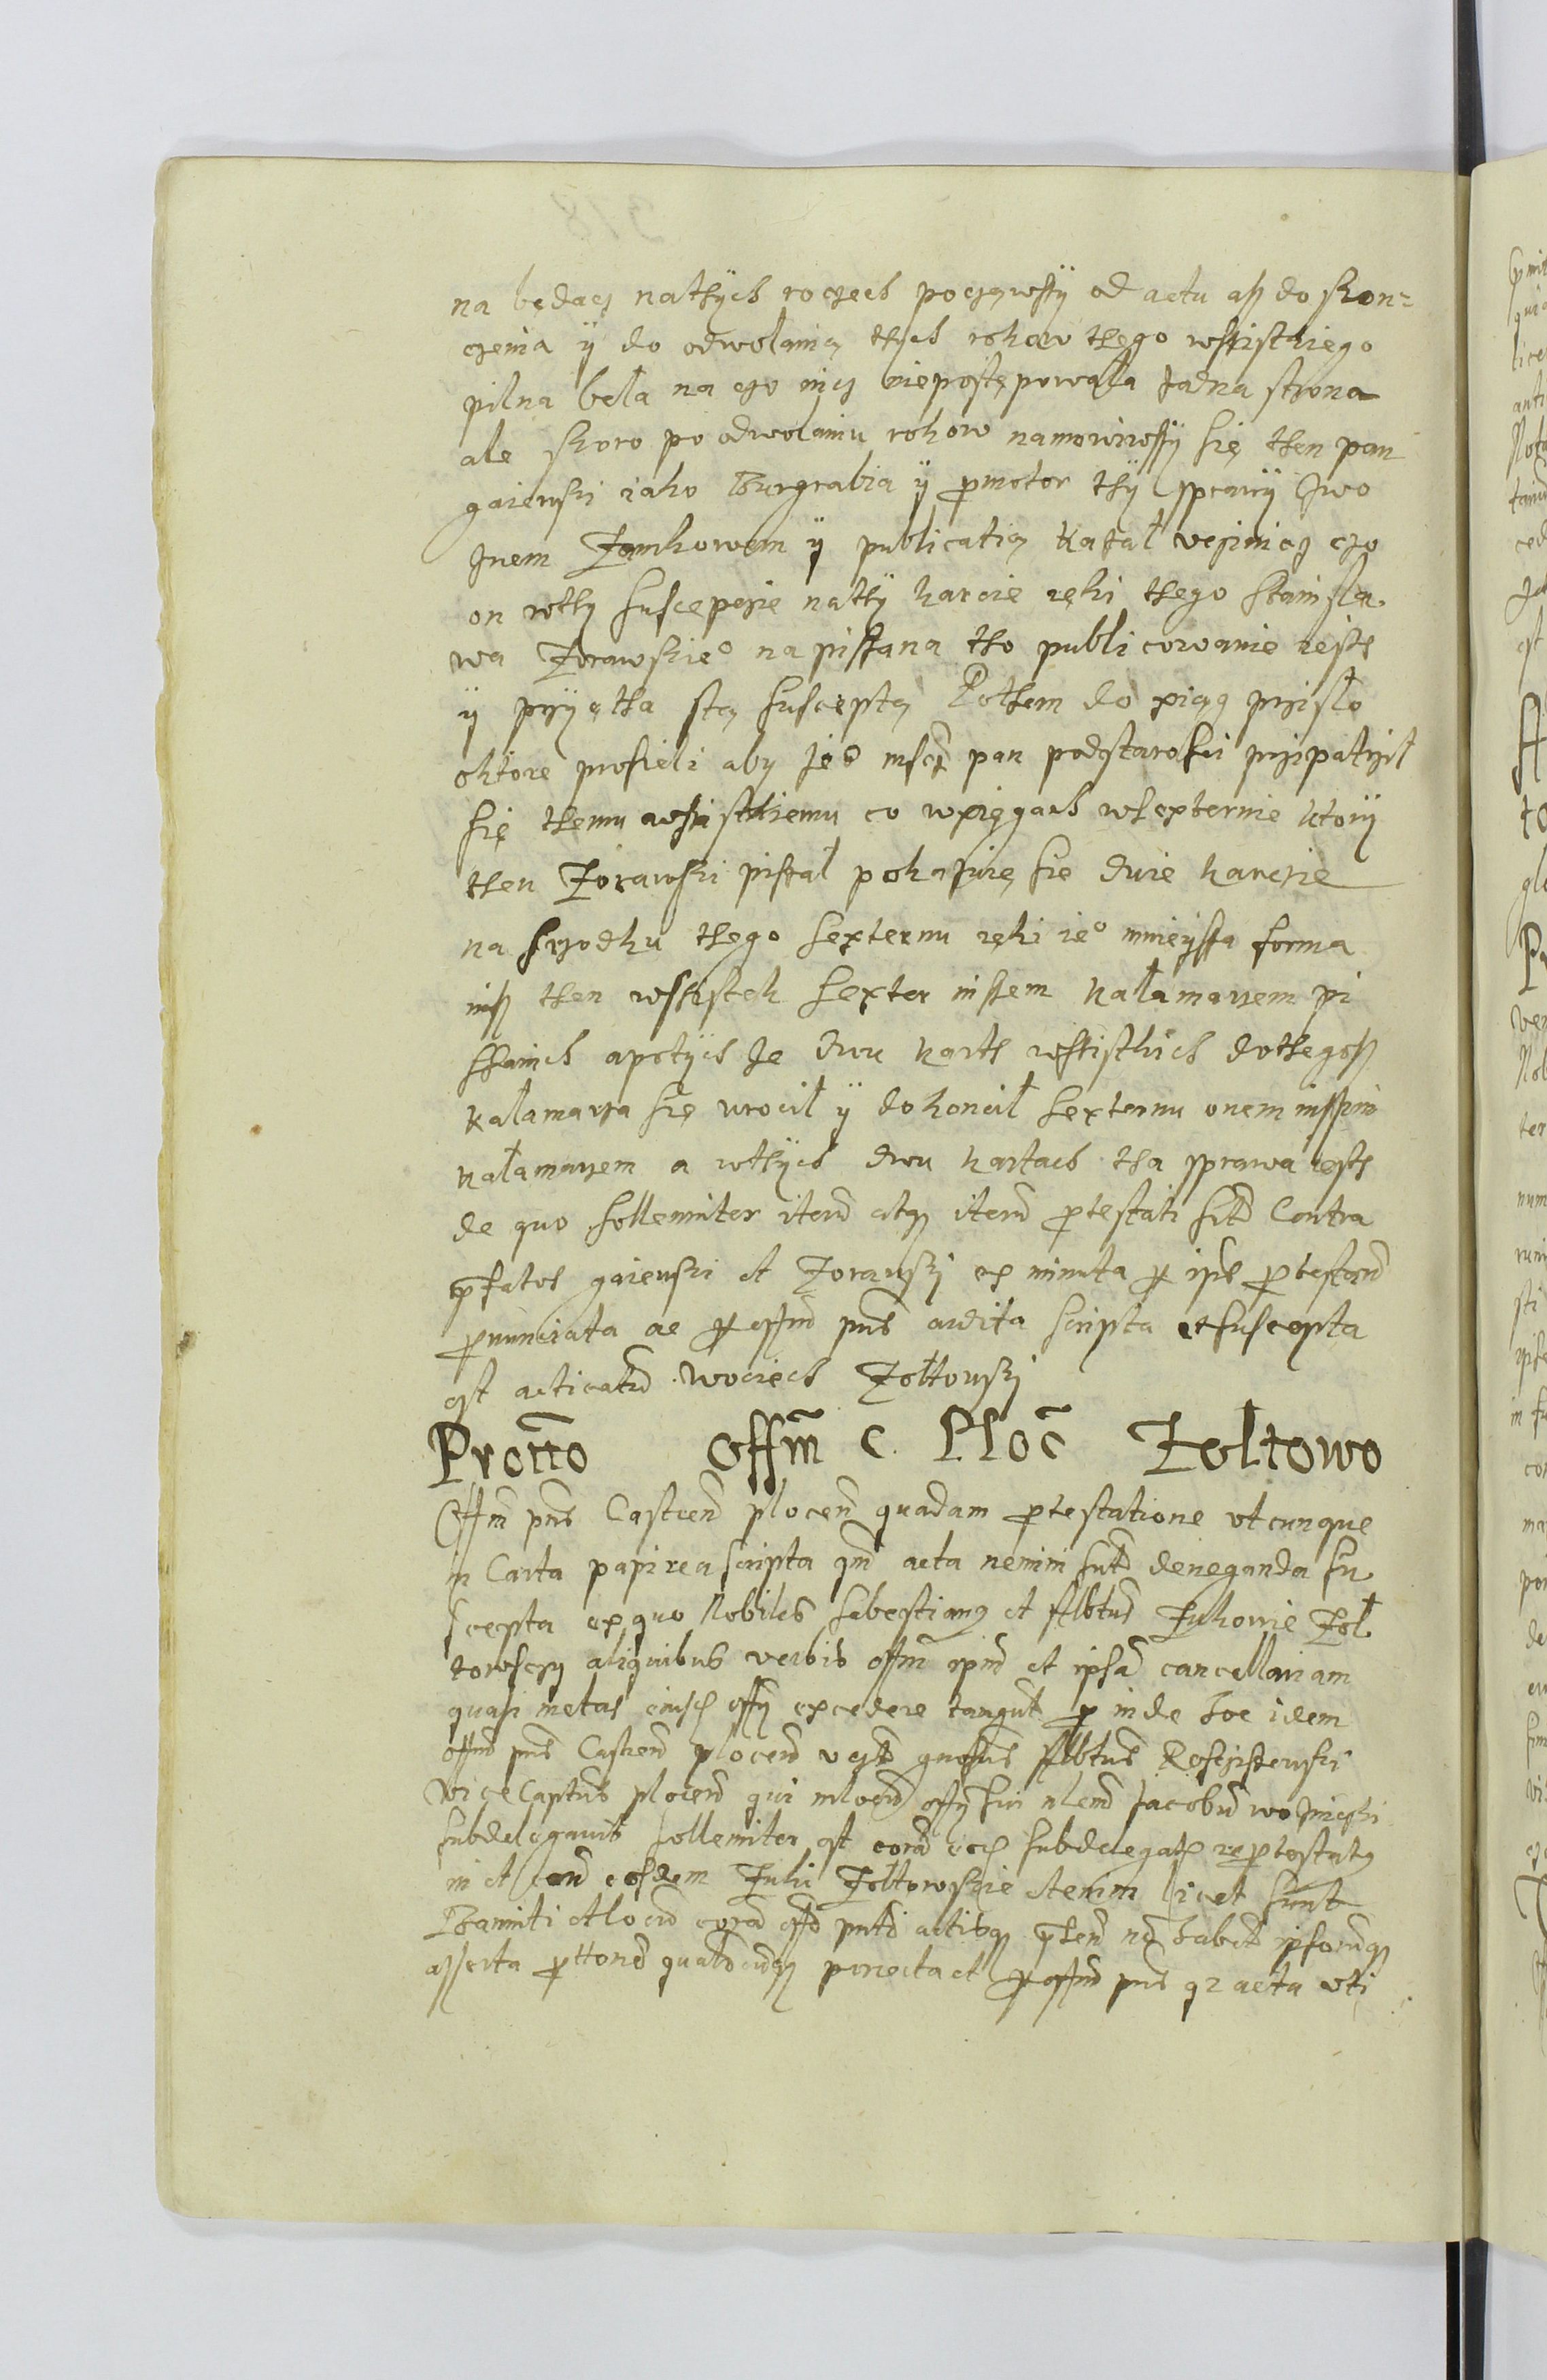 na będącz nathych roczech począwssy od actu asz do skon=
czenia ÿ do odwolania thych rokow thego wssistkiego
pilna beła na czo nicz nieposteþpowała żadna strona
ale skoro po odwolaniu rokow namowiwssy się then pan
gaiewski iako Burgrabia ÿ promotor thÿ sprawÿ zwo
znem Zamkowem ÿ publicatią kazał vczinicz czo
on wthy suscepczie nathÿ karcie ręki thego Stanisła
wa Żorawskieo napissana tho publicowanie iesth
y przyętha sta susceptą Pothem do xiąg przisło
oktore prosieli aby Jeo mscz pan podstarosci przipatrzil
się themu wssistkiemu co wxięgach wsexternie ktorÿ
then Żorawski pissal pokazuię sie dwie karczie
na srzodku thego sexternu ręki ieo mnieyssa forma
nisz then wssistek sexter inssem kałamarzem pi
ssanich apotych Je dwu karth wssistkich dothegosz
kalamarza się wrocil ÿ dokoncil sexternu onem inssim
kałamarzem a wthÿch dwu kartach tha sprawa iesth
de quo sollemniter iterū atqz iterū protestati sūt Contra
prefatos gaiewski et Żorawski ex minuta per ipos protestan
pronunciata ac per offm pns audita scripta et suscepta
est acticatū Wociech Żołtowski
Protto offm C. Ploc Zoltowo
Offm pns Castren plocen quadam protestatione vtcunque
in Carta papirea scripta qm acta nemini sūt deneganda su
scepta ex quo Nobiles Sebestianus et Albtus Żukowie Żoł
towsczy aliquibus verbis offm ipm et ipsā cancellariam
quasi metas eiusd offy excedere tangūt proinde hoc idem
offm pns Castren plocen vestr gnosus Albtus Rosciszewski
Vice Captns plocen qui in locū offy sui nlem Jacobū
subdelegavit sollemniter est corā eod subdelegato reprotestatus
in et con eosdem Żuki Żołtowskie etenim licet sunt
Banniti et locū corā offo pnti actibqz nō habēt ipsorūqz
asserta prottone qualicūqz porrecta et per offm pns qr acta vti